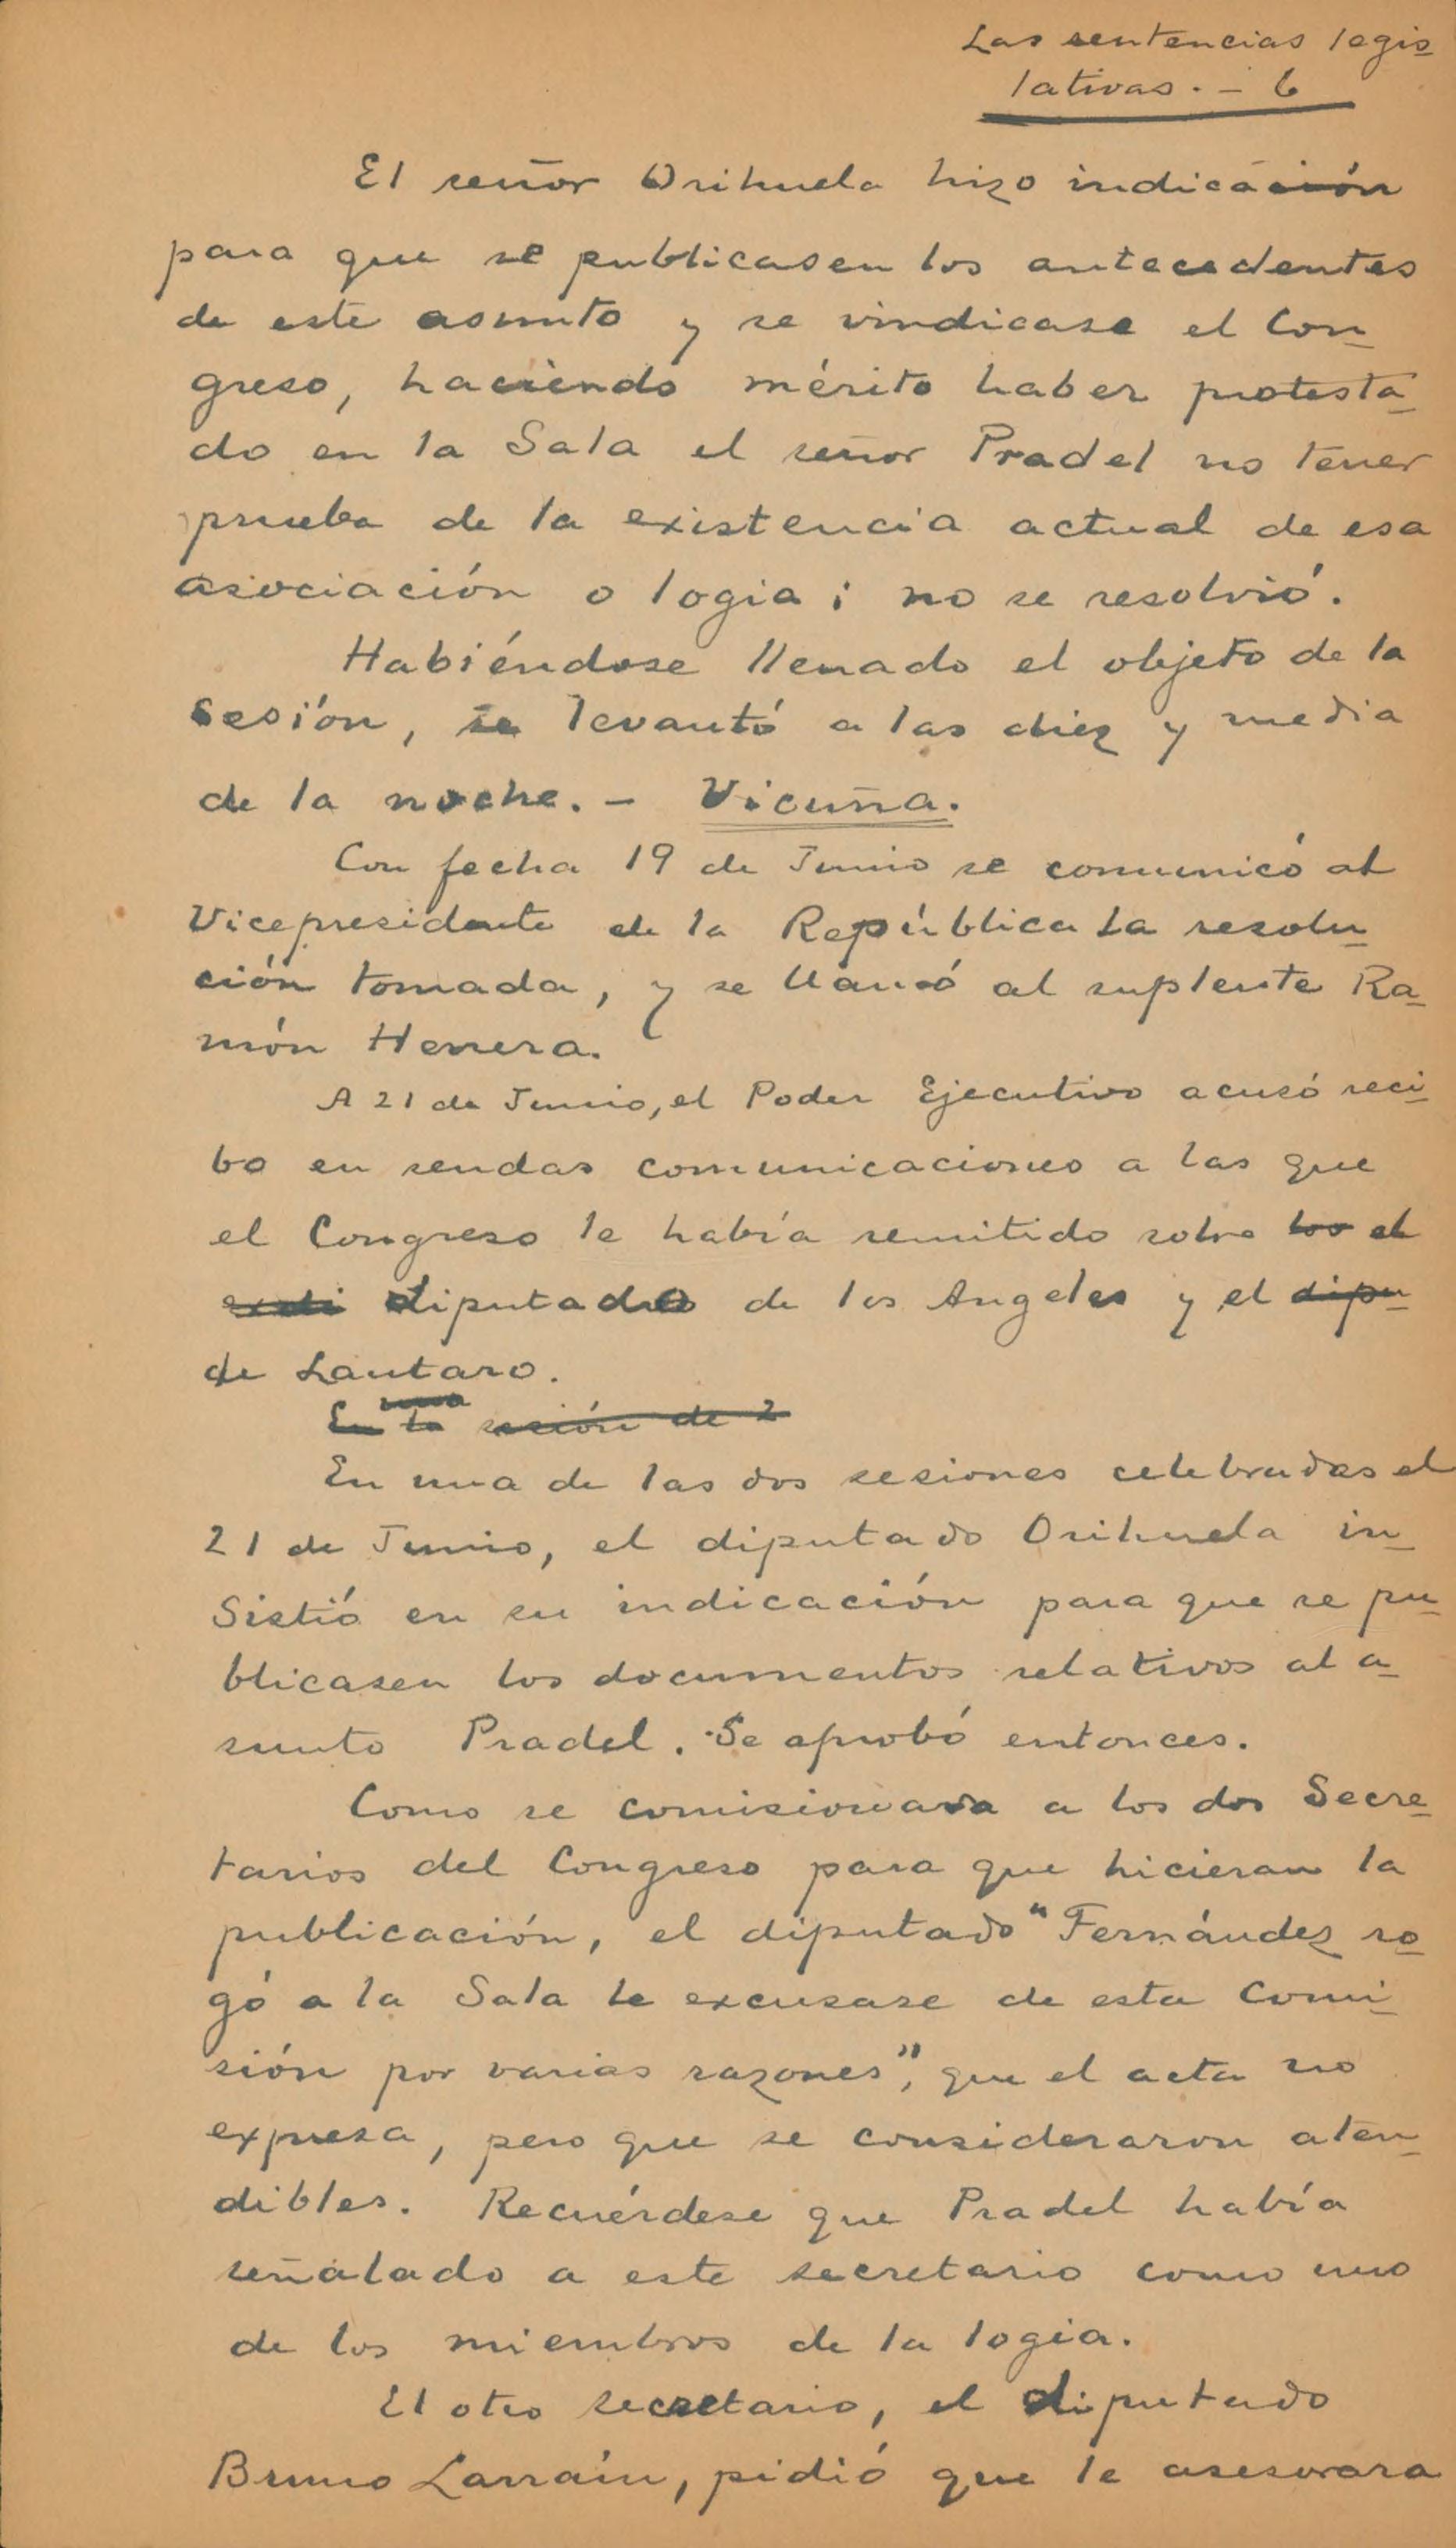 Las sentencias legis
lativas. - 6
El señor Orihuela hizo indicación
para que se publicasen los antecedentes
de este asunto y se vindicase el Con
greso, haciendo mérito haber protesta
do en la Sala el señor Pradel no tener
prueba de la existencia actual de esa
asociación o logia; no se resolvió.
Habiéndose llenado el objeto de la
sesión, se levantó a las diez y media
de la noche. - Vicuña.
Con fecha 19 de Junio se comunicó al
Vicepresidente de la República la resolu
ción tomada, y se llamó al suplente Ra
món Herrera.
A 21 de Junio, el Poder Ejecutivo acusó reci
bo en sendas comunicaciones a las que
el Congreso le había remitido sobre los el
diputado de los Angeles y el dipu
de Lautaro.
En la una sesión de 2
En una de las dos sesiones celebradas el
21 de Junio, el diputado Orihuela in
sistió en su indicación para que se pu
blicasen los documentos relativos al a
sunto Pradel. Se aprobó entonces.
Como se comisionara a los dos Secre
tarios del Congreso para que hicieran la
publicación, el diputado "Fernández ro
gó a la Sala le excusase de esta Comi
sión por varias razones", que el acta no
expresa, pero que se consideraron aten
dibles. Recuérdese que Pradel había
señalado a este secretario como uno
de los miembros de la logia.
El otro secretario, el diputado
Bruno Larraín, pidió que le asesorara